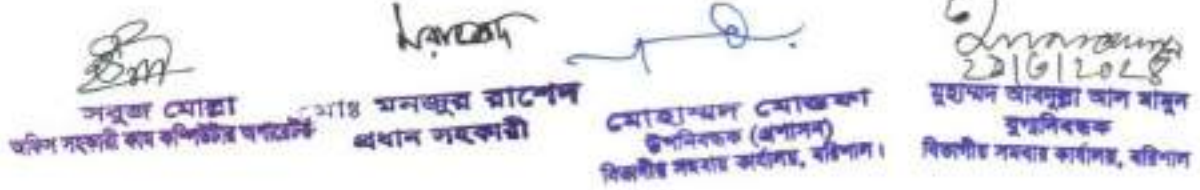 সবুজ মোল্লা
অফিস সহকারী কাম কম্পিউটার অপারেটর
মোঃ মনজুর রাশেদ
প্রধান সহকারী
মোহাম্মদ মোস্তফা
উপনিবন্ধক (প্রশাসন)
বিভাগীয় সমবায় কার্যালয়, বরিশাল।
মুহাম্মদ আবদুল্লা আল মামুন
যুগ্মনিবন্ধক
বিভাগীয় সমবায় কার্যালয়, বরিশাল